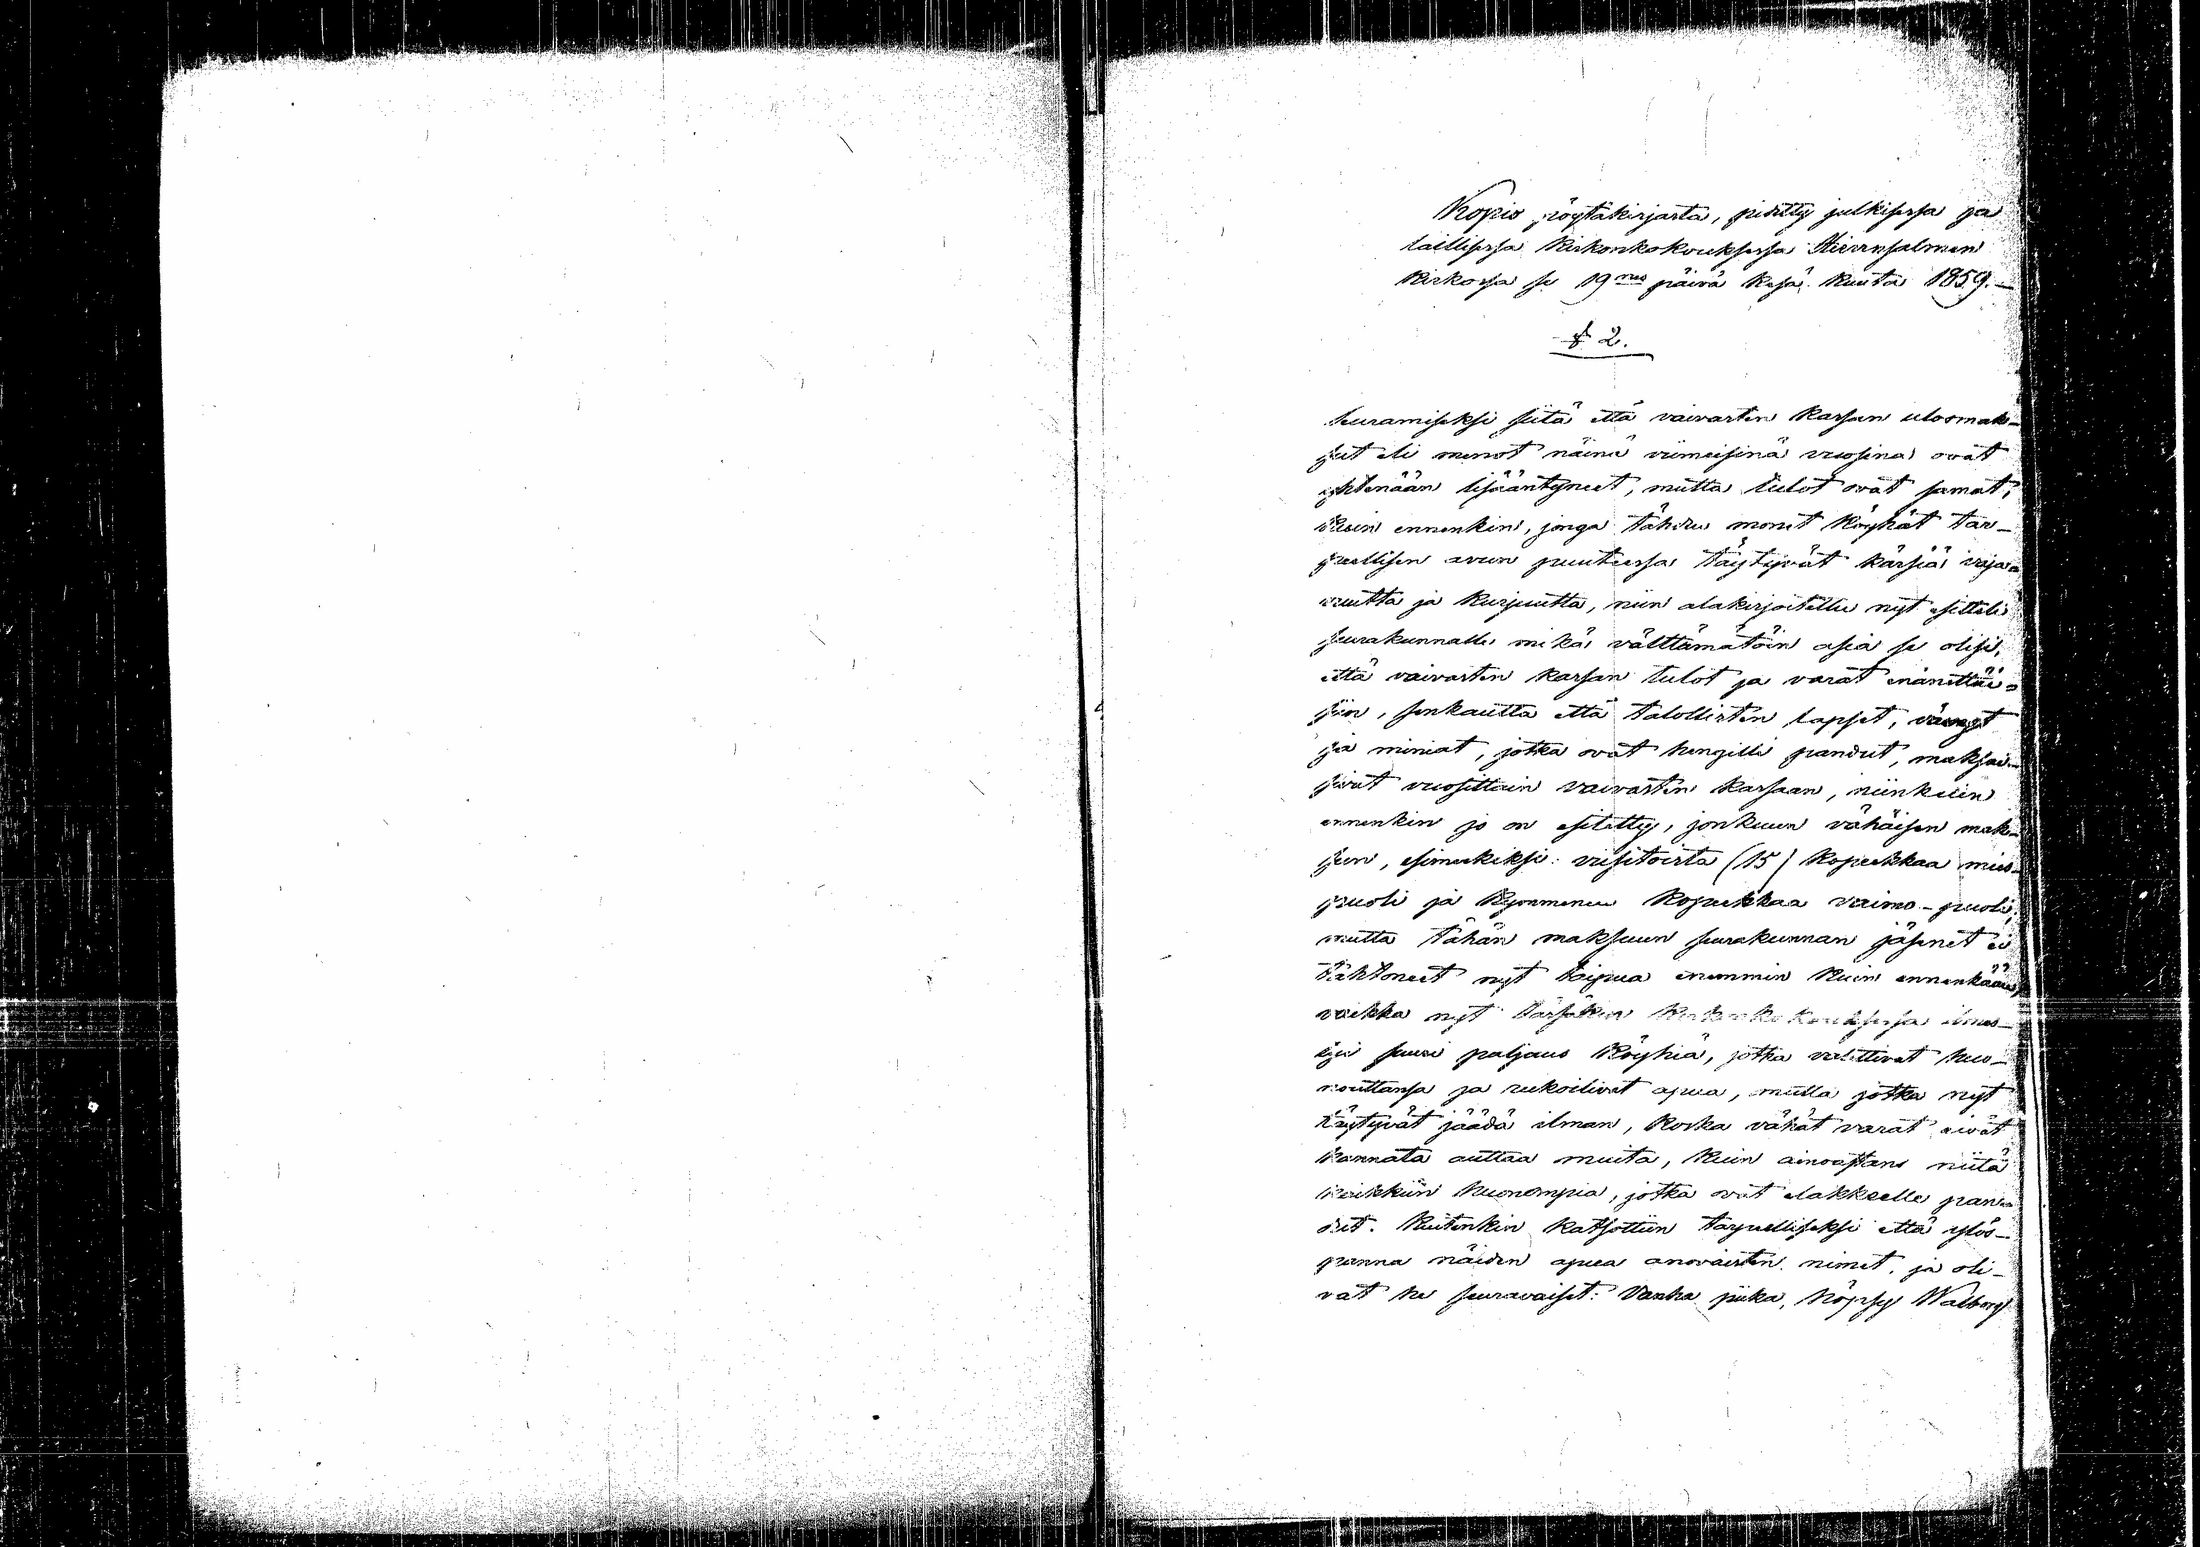 Kopio pöytäkirjasta, pidetty julkisessa ja
laillisessa Kirkonkokouksessa Hirvensalmen
Kirkossa se 19nes päivä Kesä Kuuta 1859.
§ 2.
Seuramiseksi siitä että vaivasten Kassan ulosmak-
sut eli menot näinä viimeisinä vuosina ovat
yhtenään lisääntyneet, mutta tulot ovat samat,
kuin ennenkin, jonga tähden monet Köyhät tar-
peellisen avun puuteessa täytyvät kärsiä vaja-
vuutta ja Kurjuutta, niin alakirjoitettu nyt esitteli
seurakunnalle mikä välttämätöin asia se olisi,
että vaivasten Kassan tulot ja varat enänettäi-
siin, senkautta että talollisten lapset, vävyt
ja miniät, jotka ovat hengille pandut, maksai-
sivat vuosittain vaivasten Kassaan, niinkuin
ennenkin jo on esitetty, jonkuun vähäisen mak-
sun, esimerkiksi: viisitoista (15) Kopeekkaa mies-
puoli ja Kymmenen Kopeekkaa vaimo-puoli,
mutta tähän maksuun seurakunnan jäsenet ei
tahtoneet nyt taipua enemmin Kuin ennenkään,
vaikka nyt tässäkin Kirkonkokouksessa ilmes-
tyi suuri paljous Köyhiä, jotka valittivat huo-
nouttansa ja rukoilivat apua, mutta jotka nyt
täytyvät jäädä ilman, koska vähät varat eivät
kannata auttaa muita, Kuin ainoastans niitä
kaikkiin huonompia, jotka ovat elakkeelle pan-
dut. Kuitenkin katsottiin tarpeelliseksi että ylös-
panna näiden apua anovaisten nimet, ja oli-
vat he seuravaiset: Vanha piika, höpsy Walborg